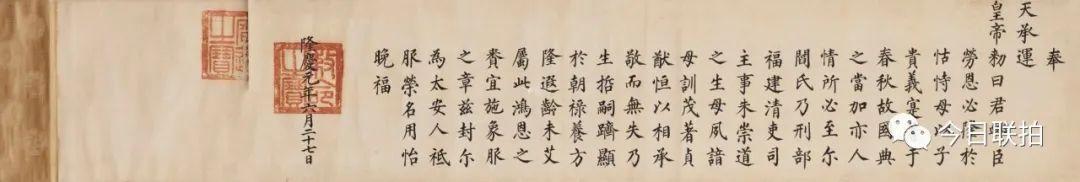 奉
天承運
皇帝勑曰君臣
勞恩必於
怙恃母以子
貴義寔于
春秋故國典
之當加亦人
情所必至尔
閻氏乃刑部
福建清吏司
主事朱崇道
之生母夙諳
母訓茂著貞
猷恒以相承
敬而無失乃
生哲嗣躋顯
於朝祿養方
隆遐齡未艾
屬此鴻恩之
賚宜施象服
之章兹封尔
為太安人祗
服榮名用怡
晚福
隆慶元年六月二十七日
敕命之寶
今日联拍